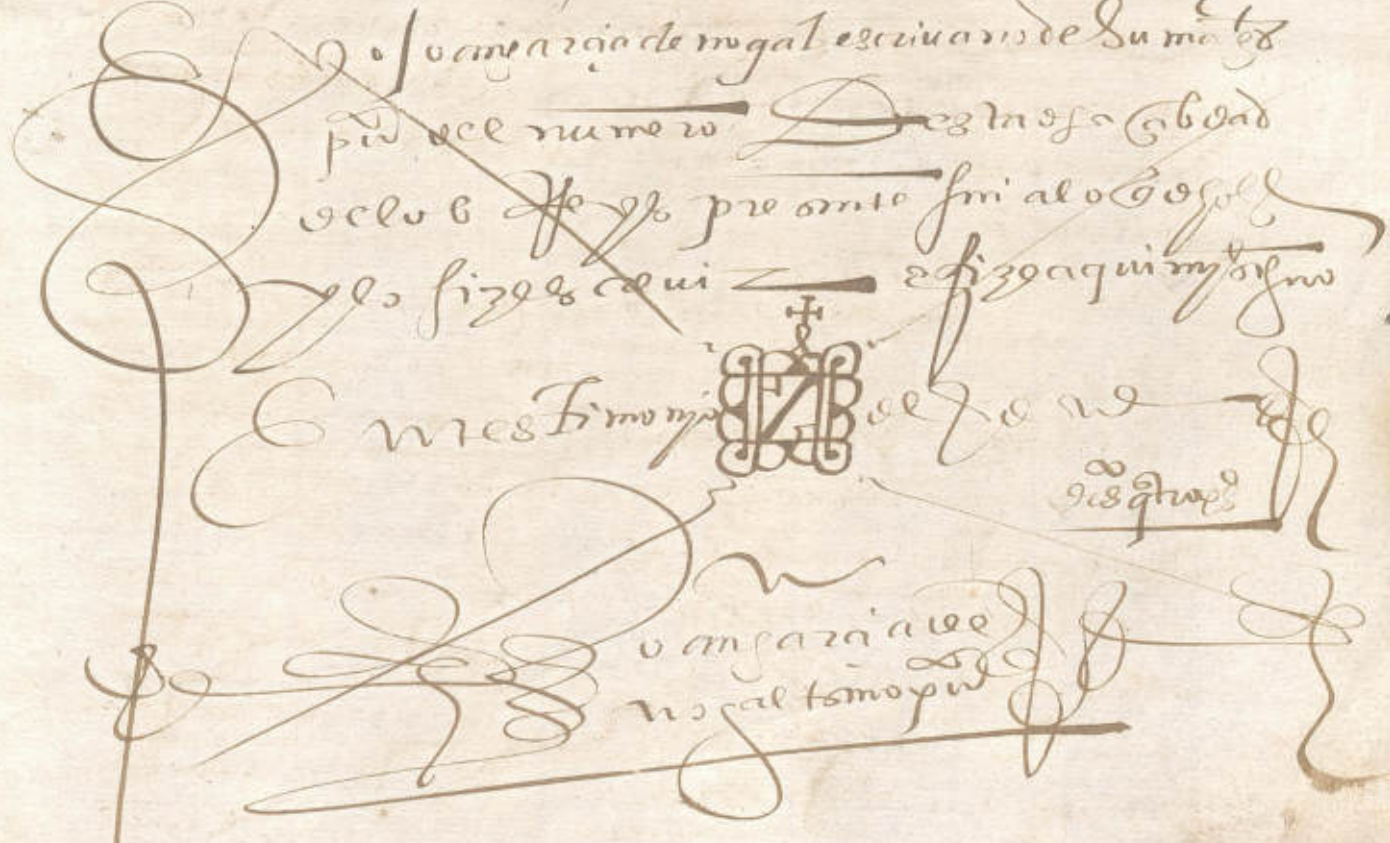 E yo Joan garçia de nogal escriuano de Su mag.t e
pu° del numero Desta dha çibdad
de los Reyes presente fui a lo q dho es
y lo fize escreuir e fize aqui myo signo
En testimonyo de verdad
dos qtro p°s
Joan garcia de
nogal esno pu°